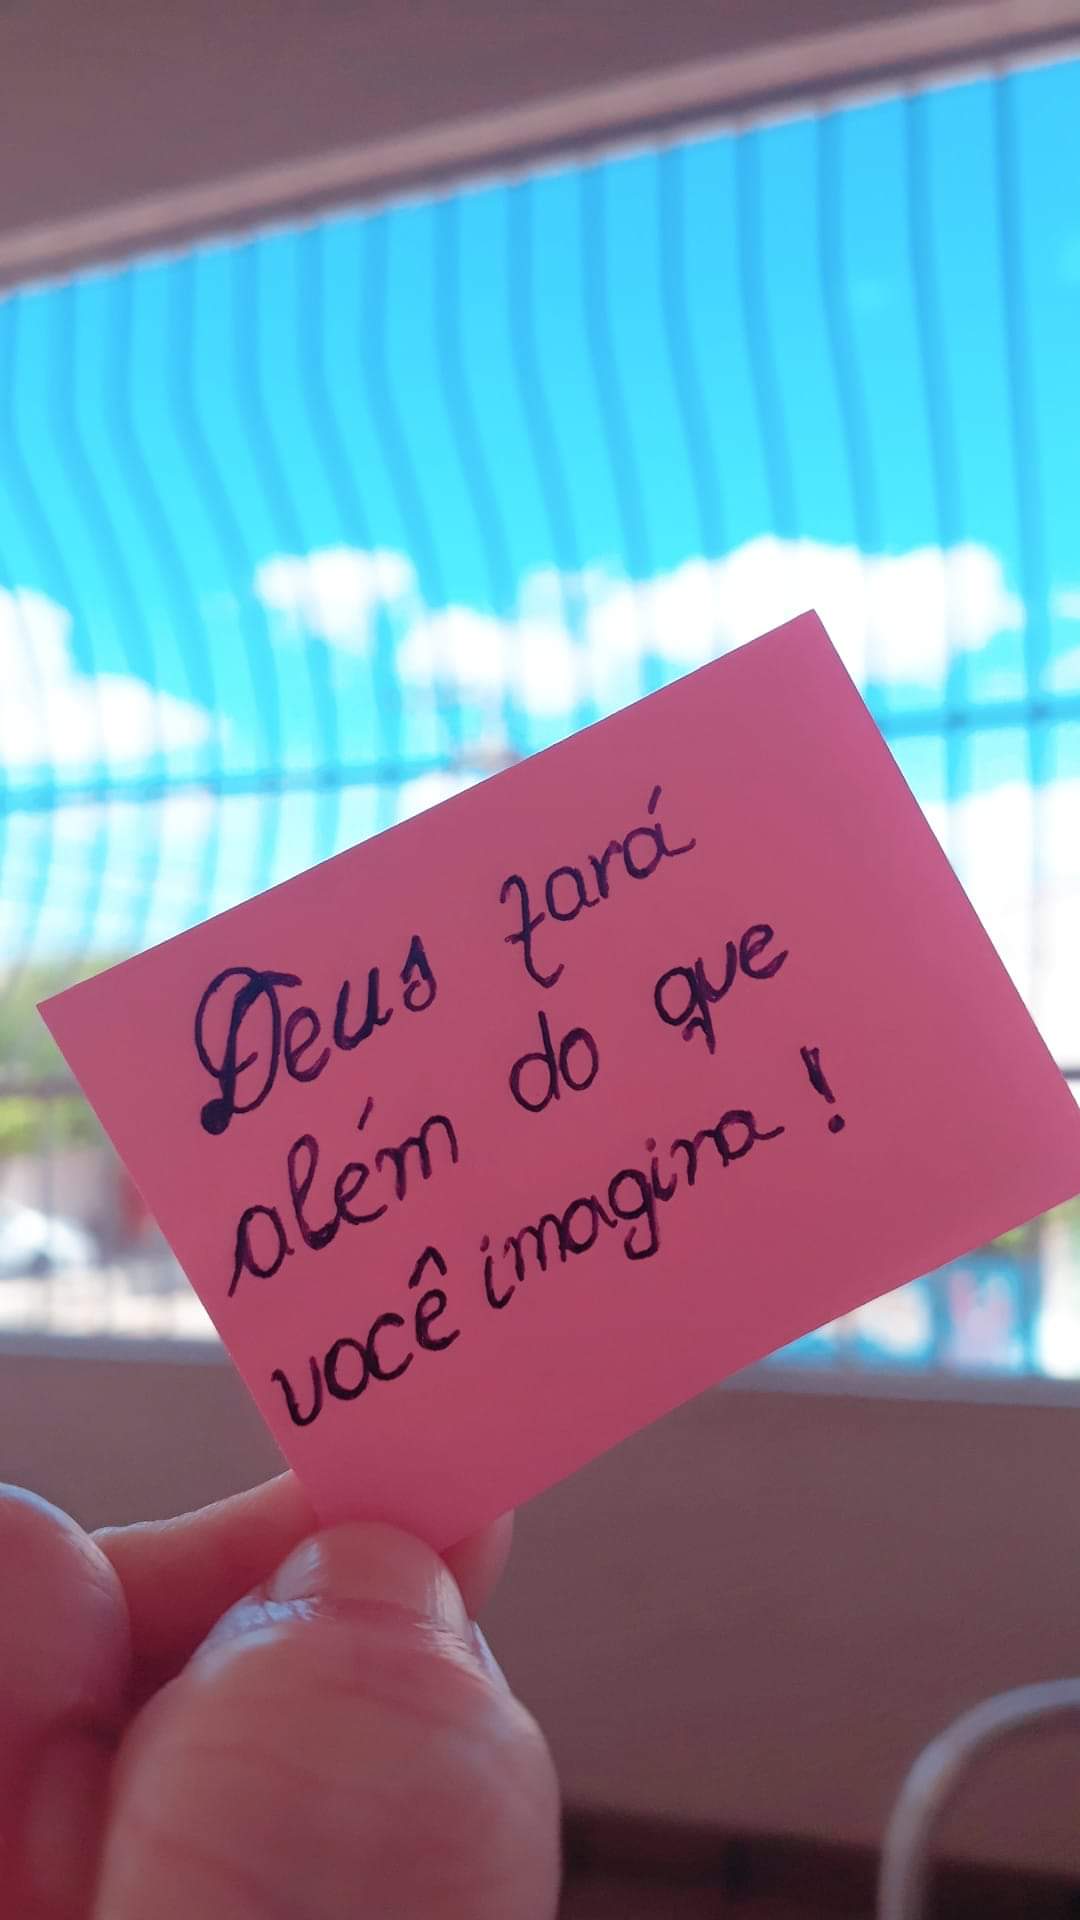 Deus fará
além do que
você imagina!